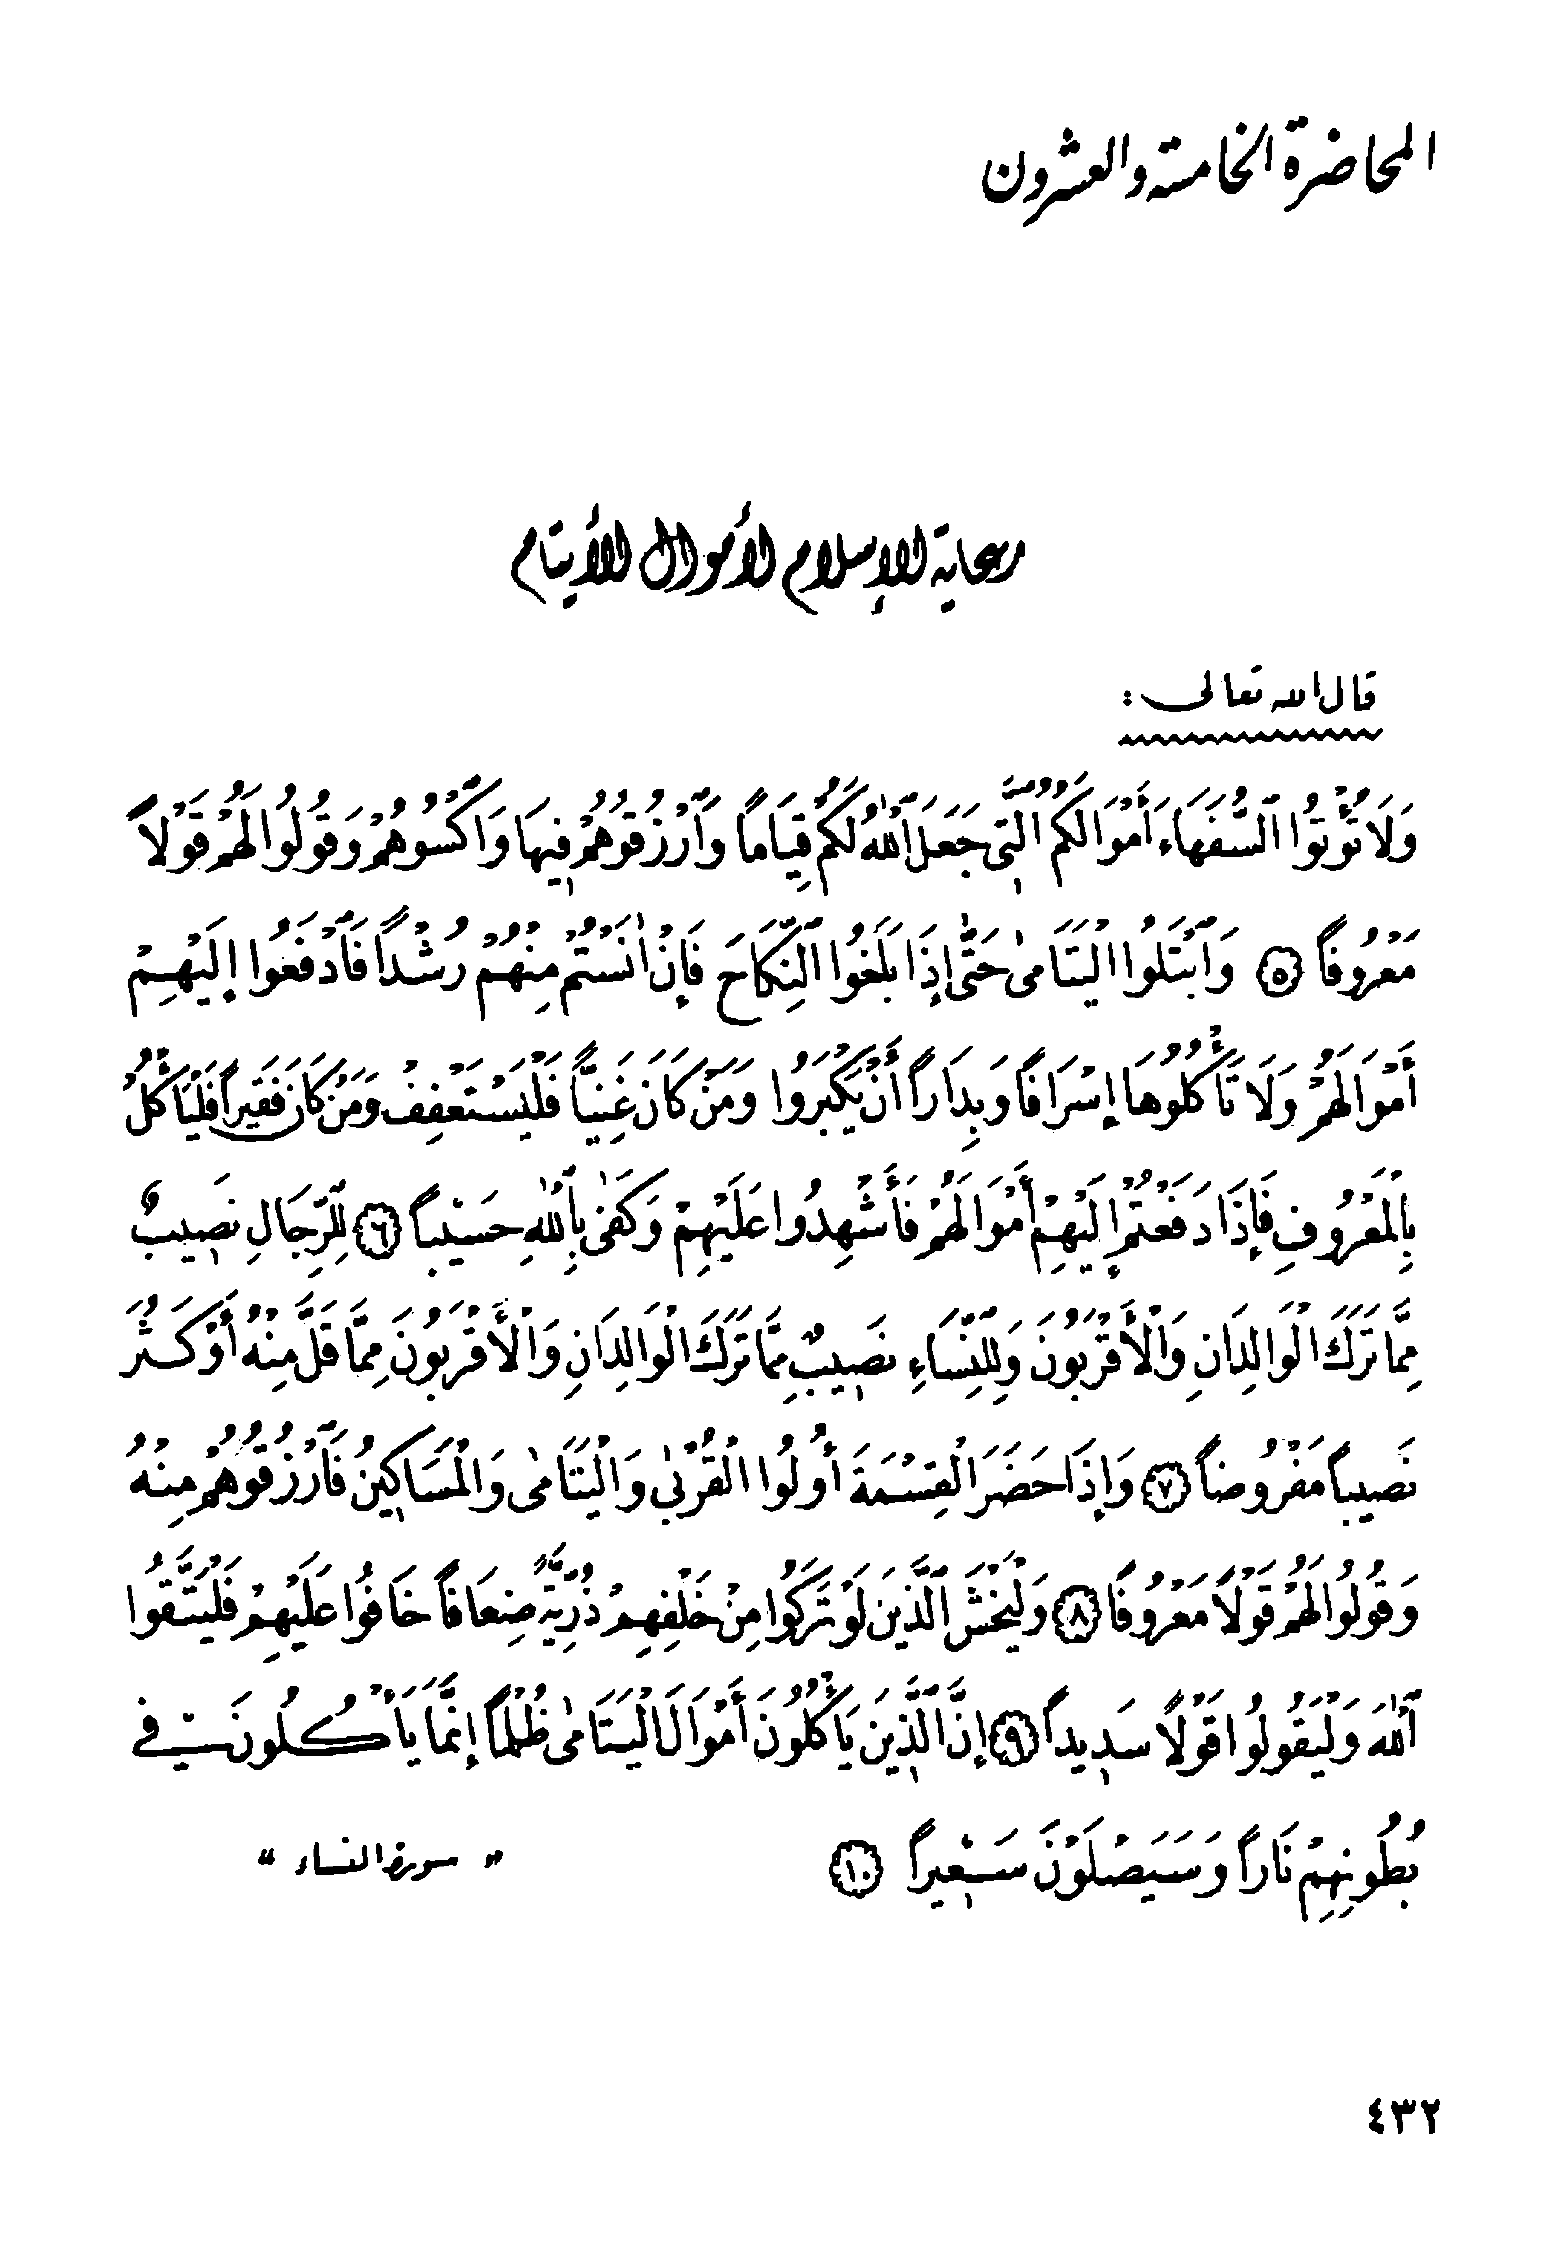 المحاضرة الخامسة والعشرون
رعاية الإسلام لأموال الأيتام
قال الله تعالى :
وَلَا تُؤْتُوا السُّفَهَاءَ أَمْوَالَكُمُ الَّتِي جَعَلَ اللهُ لَكُمْ قِيَاماً وَارْزُقُوهُمْ فِيهَا وَاكْسُوهُمْ وَقُولُوا لَهُمْ قَوْلاً
مَعْرُوفاً ٥ وَابْتَلُوا الْيَتَامَىٰ حَتَّىٰ إِذَا بَلَغُوا النِّكَاحَ فَإِنْ اٰنَسْتُمْ مِنْهُمْ رُشْداً فَادْفَعُوا إِلَيْهِمْ
أَمْوَالَهُمْ وَلَا تَأْكُلُوهَا إِسْرَافاً وَبِدَاراً أَنْ يَكْبَرُوا وَمَنْ كَانَ غَنِيّاً فَلْيَسْتَعْفِفْ وَمَنْ كَانَ فَقِيراً فَلْيَأْكُلْ
بِالْمَعْرُوفِ فَإِذَا دَفَعْتُمْ إِلَيْهِمْ أَمْوَالَهُمْ فَأَشْهِدُوا عَلَيْهِمْ وَكَفَىٰ بِاللهِ حَسِيباً ٦ لِلرِّجَالِ نَصِيبٌ
مِمَّا تَرَكَ الْوَالِدَانِ وَالْأَقْرَبُونَ وَلِلنِّسَاءِ نَصِيبٌ مِمَّا تَرَكَ الْوَالِدَانِ وَالْأَقْرَبُونَ مِمَّا قَلَّ مِنْهُ أَوْ كَثُرَ
نَصِيباً مَفْرُوضاً ٧ وَإِذَا حَضَرَ الْقِسْمَةَ أُولُوا الْقُرْبَىٰ وَالْيَتَامَىٰ وَالْمَسَاكِينُ فَارْزُقُوهُمْ مِنْهُ
وَقُولُوا لَهُمْ قَوْلًا مَعْرُوفًا ٨ وَلْيَخْشَ الَّذِينَ لَوْ تَرَكُوا مِنْ خَلْفِهِمْ ذُرِّيَّةً ضِعَافاً خَافُوا عَلَيْهِمْ فَلْيَتَّقُوا
اللهَ وَلْيَقُولُوا قَوْلًا سَدِيداً ٩ إِنَّ الَّذِينَ يَأْكُلُونَ أَمْوَالَ الْيَتَامَىٰ ظُلْماً إِنَّمَا يَأْكُلُونَ فِي
بُطُونِهِمْ نَاراً وَسَيَصْلَوْنَ سَعِيراً ١٠ « سورة النساء »
٤٣٢